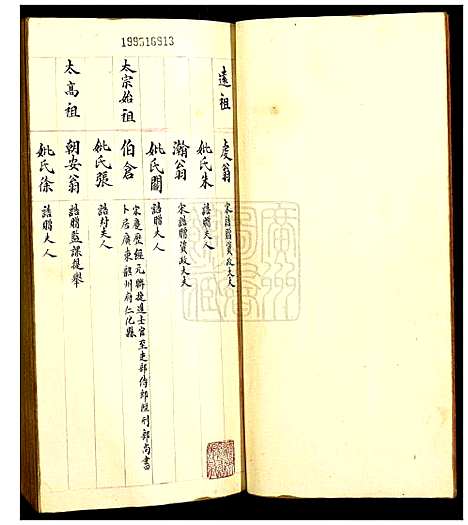 199316913
遠祖
虔翁 宋誥贈資政大夫
妣氏朱 誥贈夫人
瀚翁 宋誥贈資政大夫
妣氏關 誥贈夫人
太宗始祖
伯倉 宋慶歷經元聯捷進士官至吏部侍郎陞刑部尚書
卜居廣東韶州府仁化縣
妣氏張 誥封夫人
太高祖
朝安翁 誥贈監課提舉
妣氏徐 誥贈夫人